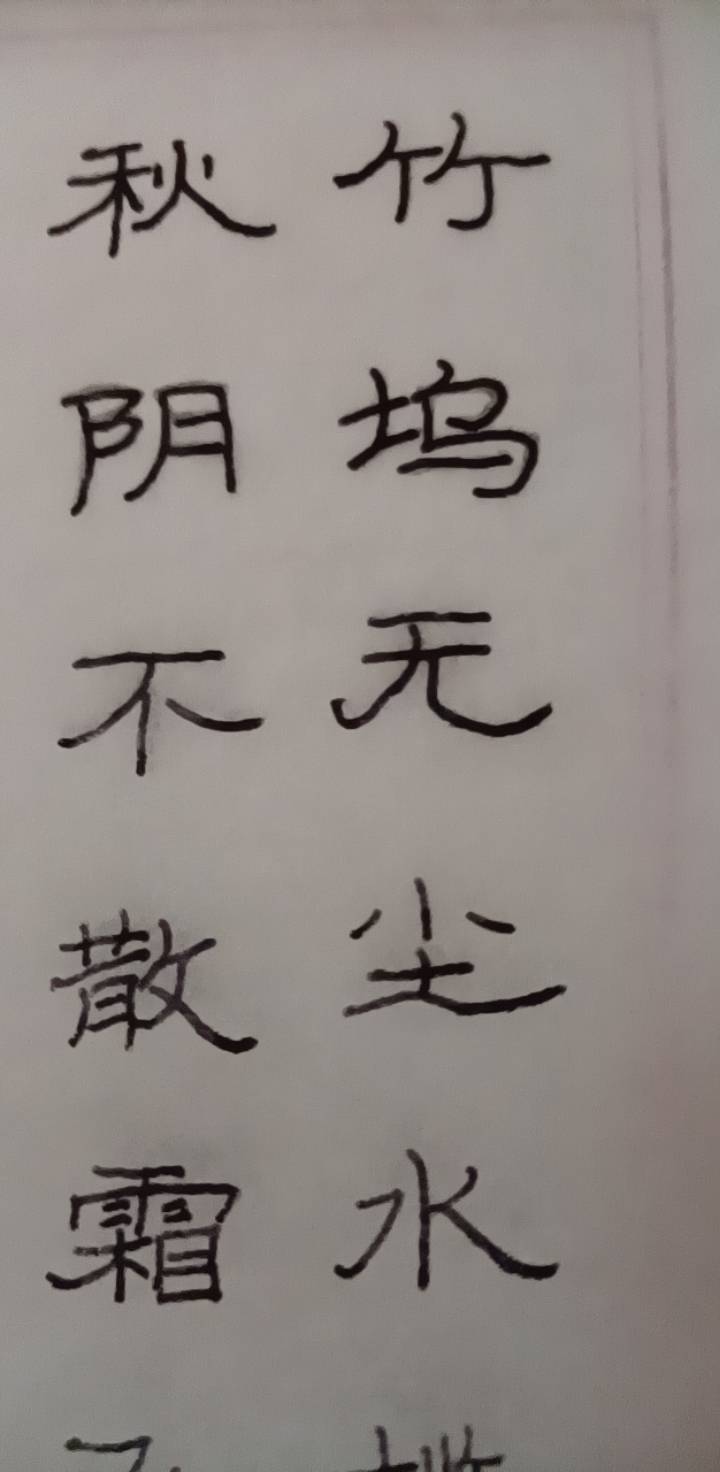 竹坞无尘水
秋阴不散霜